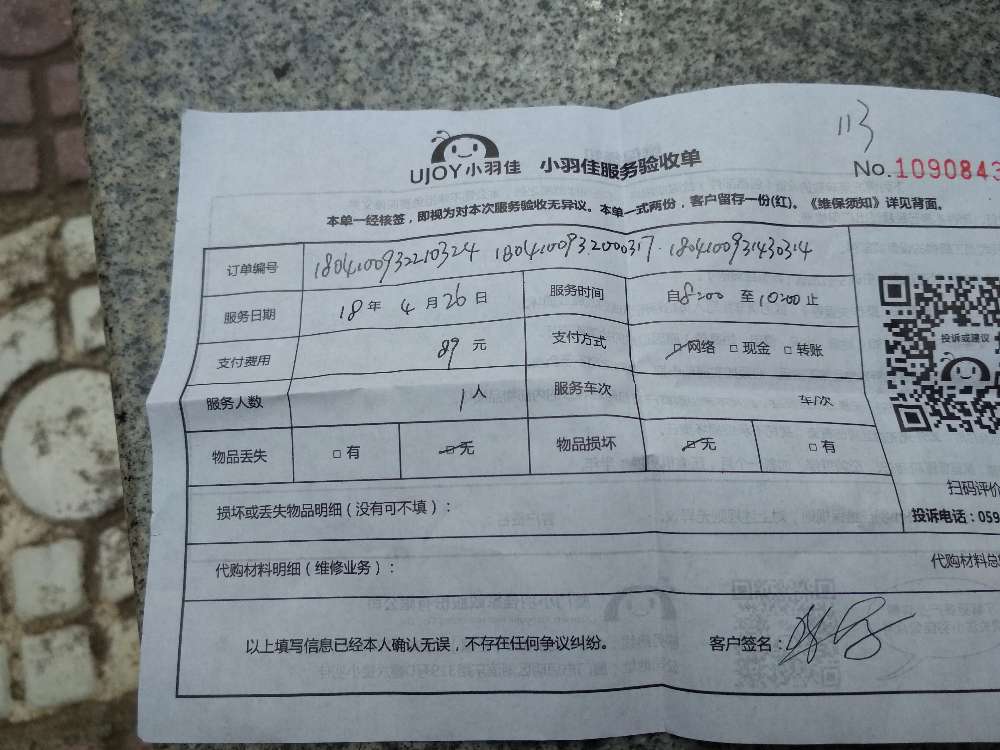 113
UJOY小羽佳 小羽佳服务验收单
No.1090843
本单一经核签，即视为对本次服务验收无异议。本单一式两份，客户留存一份(红)。《维保须知》详见背面。
订单编号 1804100932210324 1804100932000317 1804100931430314
服务日期 18年 4月26日 服务时间 自8:00 至10:00止
支付费用 89元 支付方式 □网络 □现金 □转账
服务人数 1人 服务车次 车/次
物品丢失 □有 □无 物品损坏 □无 □有
投诉或建议
扫码评价
投诉电话：059
损坏或丢失物品明细（没有可不填）：
代购材料明细（维修业务）： 代购材料总
以上填写信息已经本人确认无误，不存在任何争议纠纷。 客户签名：